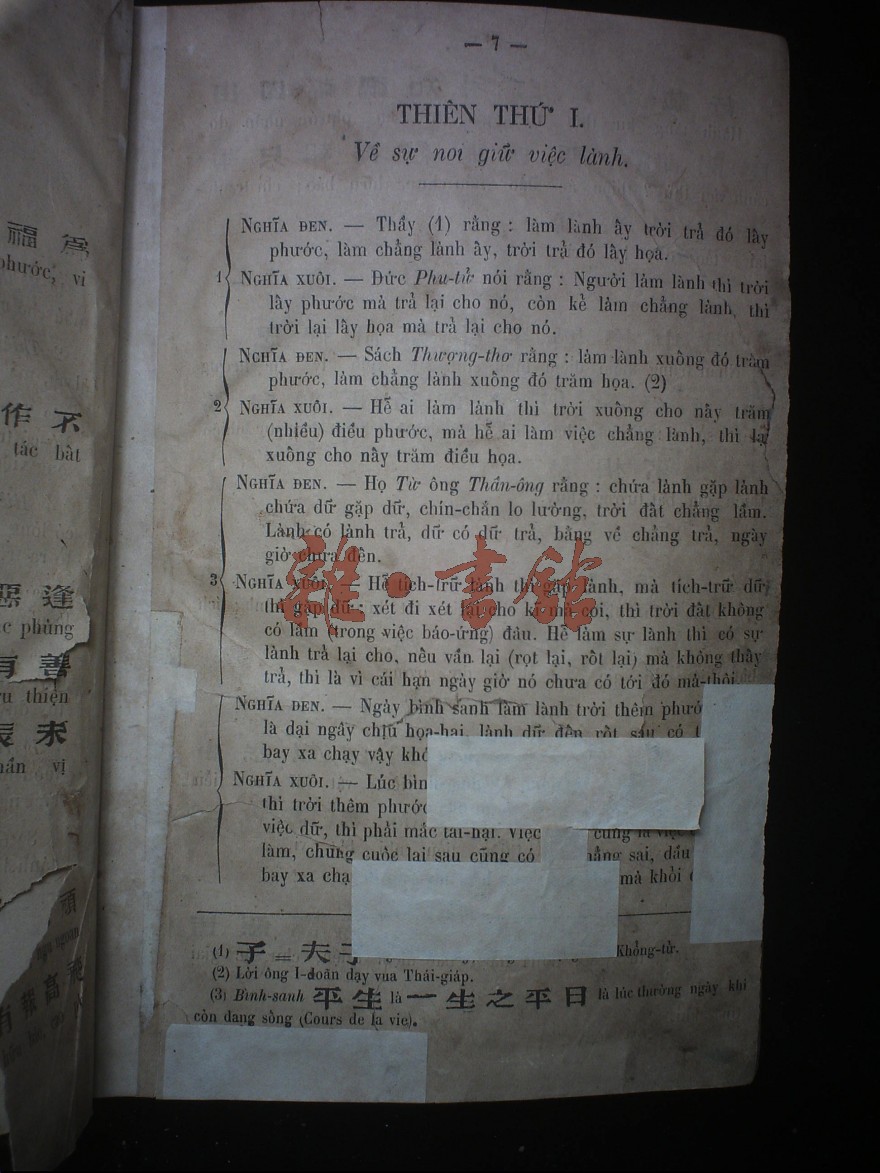 — 7 —
THIÊN THỨ I.
Về sự noi giữ việc lành.
NGHĨA ĐEN. — Thầy (1) rằng : làm lành ấy trời trả đó lấy
phước, làm chẳng lành ấy, trời trả đó lấy họa.
1 NGHĨA XUÔI. — Đức Phu-tử nói rằng : Người làm lành thì trời
lấy phước mà trả lại cho nó, còn kẻ làm chẳng lành, thì
trời lại lấy họa mà trả lại cho nó.
NGHĨA ĐEN. — Sách Thượng-thơ rằng : làm lành xuống đó trăm
phước, làm chẳng lành xuống đó trăm họa. (2)
2 NGHĨA XUÔI. — Hễ ai làm lành thì trời xuống cho nấy trăm
(nhiều) điều phước, mà hễ ai làm việc chẳng lành, thì lại
xuống cho nấy trăm điều họa.
NGHĨA ĐEN. — Họ Từ ông Thần-ông rằng : chứa lành gặp lành
chứa dữ gặp dữ, chín-chắn lo lường, trời đất chẳng lầm.
Lành có lành trả, dữ có dữ trả, bằng về chẳng trả, ngày
giờ chưa đến.
3 NGHĨA XUÔI. — Hễ tích-trữ lành thì gặp lành, mà tích-trữ dữ
thì gặp dữ ; xét đi xét lại cho kĩ mà coi, thì trời đất không
có lầm (trong việc báo-ứng) đâu. Hễ làm sự lành thì có sự
lành trả lại cho, nếu vần lại (rọt lại, rốt lại) mà không thấy
trả, thì là vì cái hạn ngày giờ nó chưa có tới đó mà-thôi
NGHĨA ĐEN. — Ngày bình sanh làm lành trời thêm phước
là dại ngây chịu họa-hại, lành dữ đến rốt sau có
bay xa chạy vậy
NGHĨA XUÔI. — Lúc
thì trời thêm phước
việc dữ, thì phải mắc tai-hại. Việc cũng là việc
làm, chung cuộc lại sau cũng có chẳng sai, dầu
bay xa mà khỏi
(1) 子 = 夫 Khổng-tử.
(2) Lời ông I-doãn dạy vua Thái-giáp.
(3) Bình-sanh 平生 là 一生之平日 là lúc thường ngày khi
còn đang sống (Cours de la vie).
福 為
phước, vi
作 不
tác bất
惡 逢
phùng
有 善
thiện
辰 未
vị
雜·書館